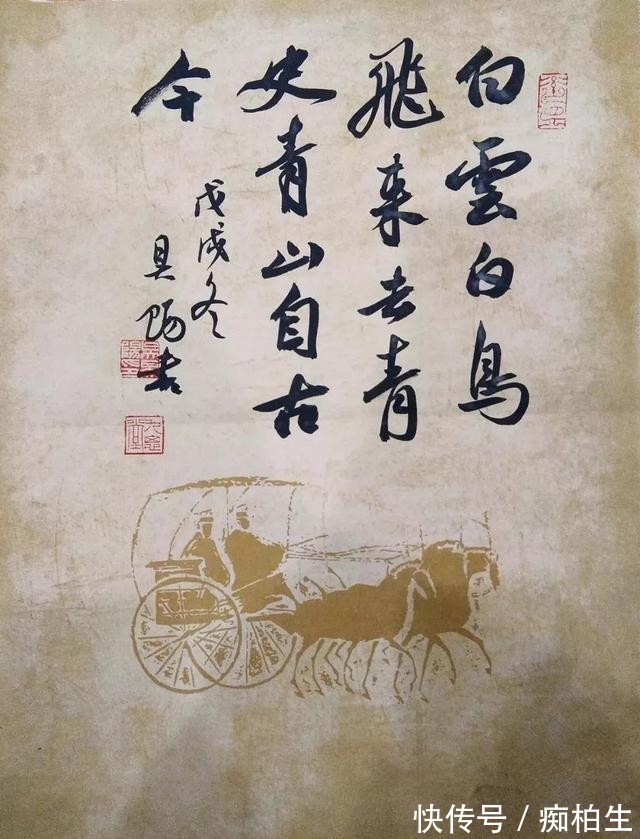 白雲白鳥
飛来去青
史青山自古
今
戊戌冬
快传号 / 痴柏生